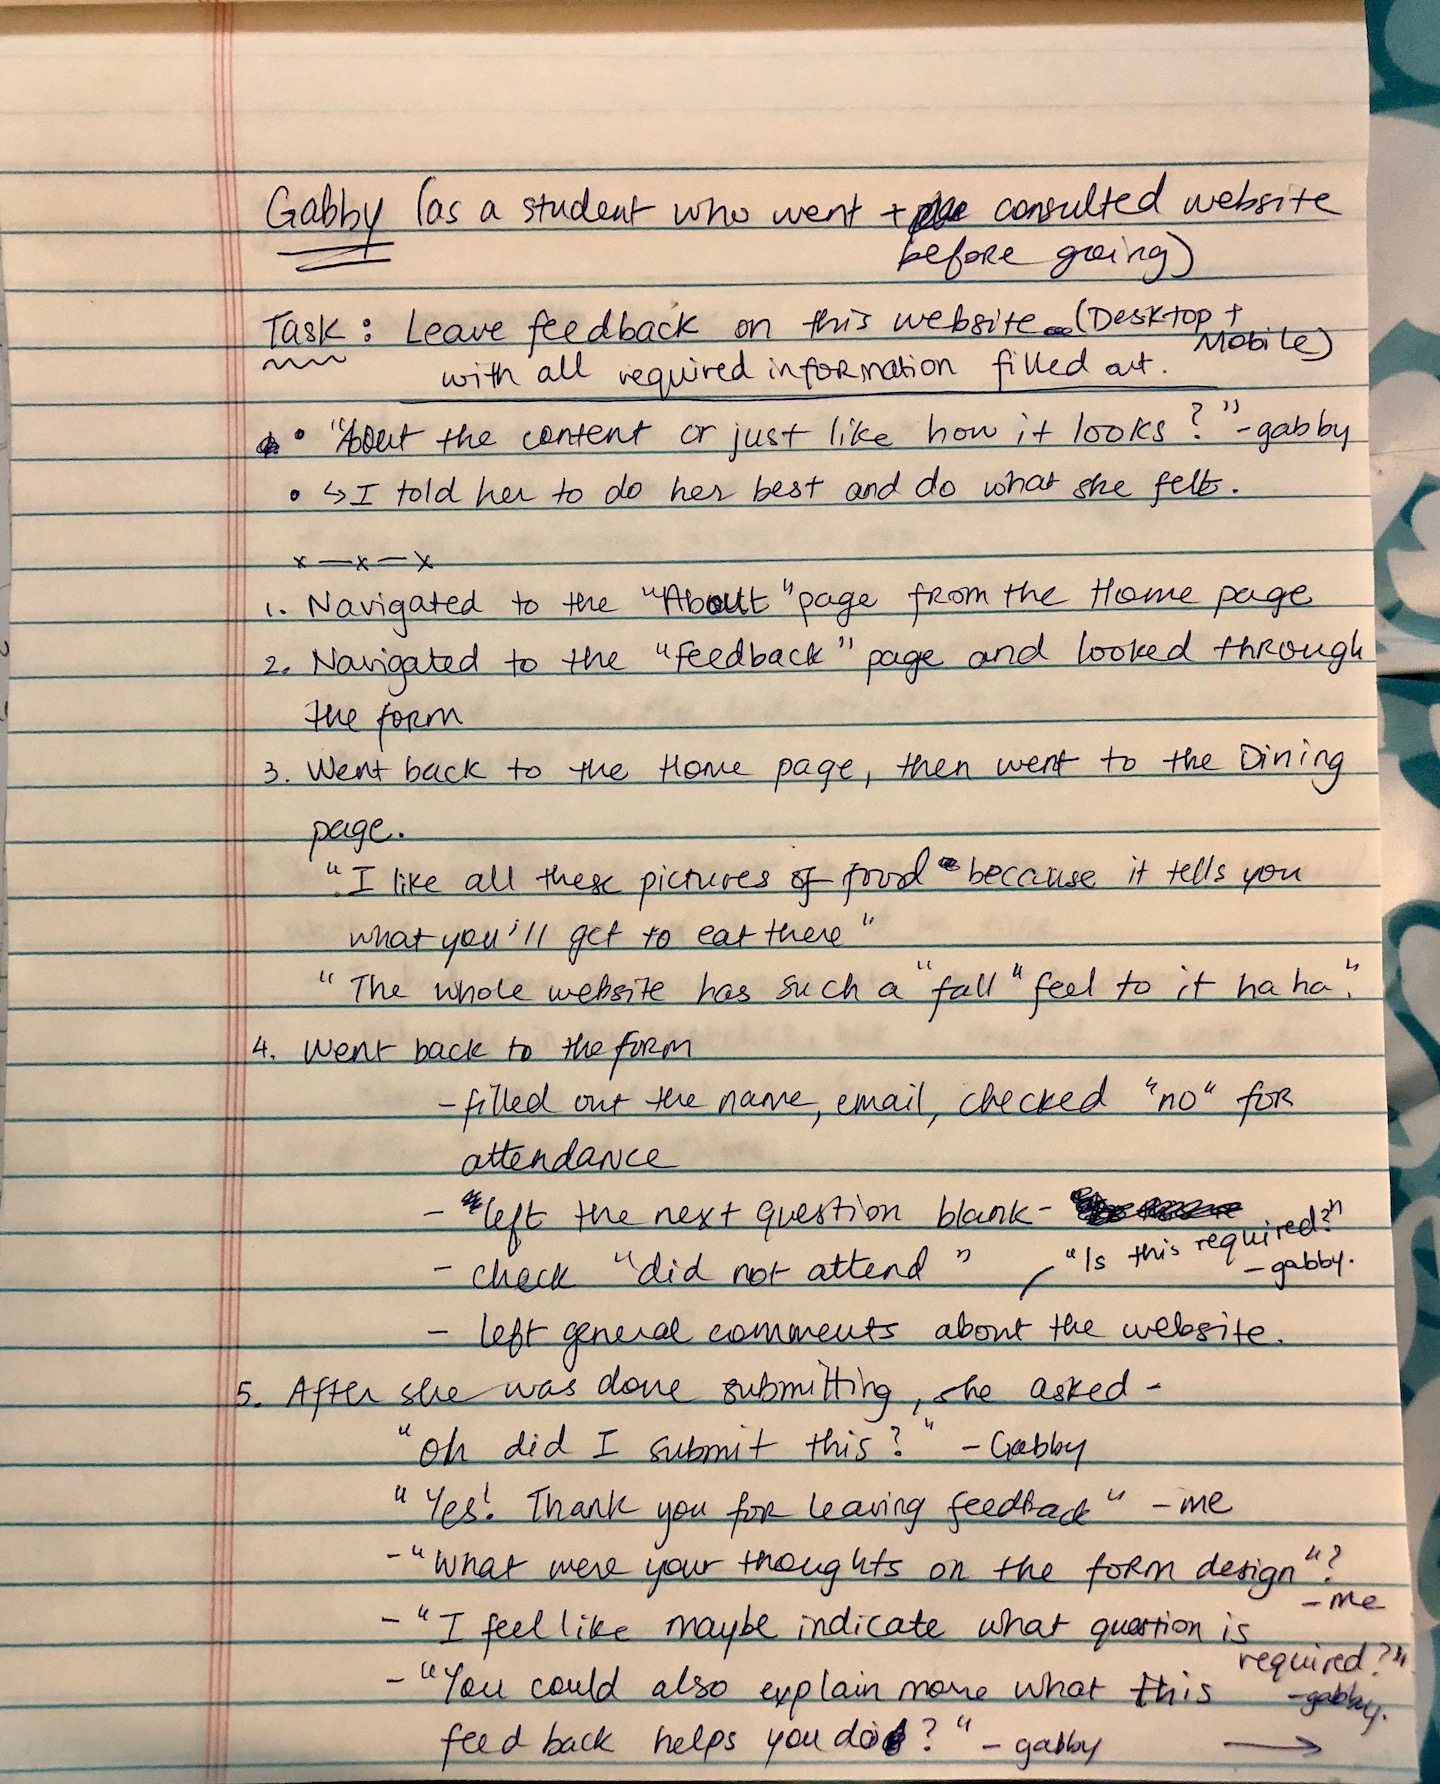 Gabby (as a student who went + consulted website
before going)
Task: Leave feedback on this website (Desktop +
Mobile)
with all required information filled out.
• "About the content or just like how it looks?" - gabby
• ↳ I told her to do her best and do what she felt.
x — x — x
1. Navigated to the "About" page from the Home page
2. Navigated to the "feedback" page and looked through
the form
3. Went back to the Home page, then went to the Dining
page.
"I like all these pictures of food because it tells you
what you'll get to eat there"
"The whole website has such a "fall" feel to it ha ha".
4. Went back to the form
- filled out the name, email, checked "no" for
attendance
- left the next question blank -
"Is this required?"
- gabby.
- check "did not attend"
- left general comments about the website.
5. After she was done submitting, she asked -
"Oh did I submit this?" - Gabby
"Yes! Thank you for leaving feedback" - me
- "What were your thoughts on the form design"?
- me
- "I feel like maybe indicate what question is
required?"
- gabby.
- "You could also explain more what this
feedback helps you do?" - gabby →